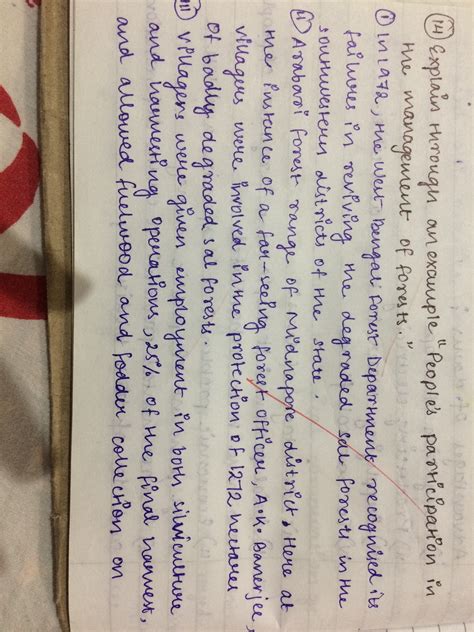 (14) Explain through an example "People's participation in
the management of forests."
(i) In 1972, the West Bengal Forest Department recognised its
failures in reviving the degraded sal forests in the
southwestern districts of the state.
(ii) Arabari forest range of Midnapore district. Here at
the instance of a far-seeing forest officer, A.K. Banerjee,
villagers were involved in the protection of 1272 hectares
of badly degraded sal forests.
(iii) Villagers were given employment in both silviculture
and harvesting operations, 25% of the final harvest,
and allowed fuelwood and fodder collection on